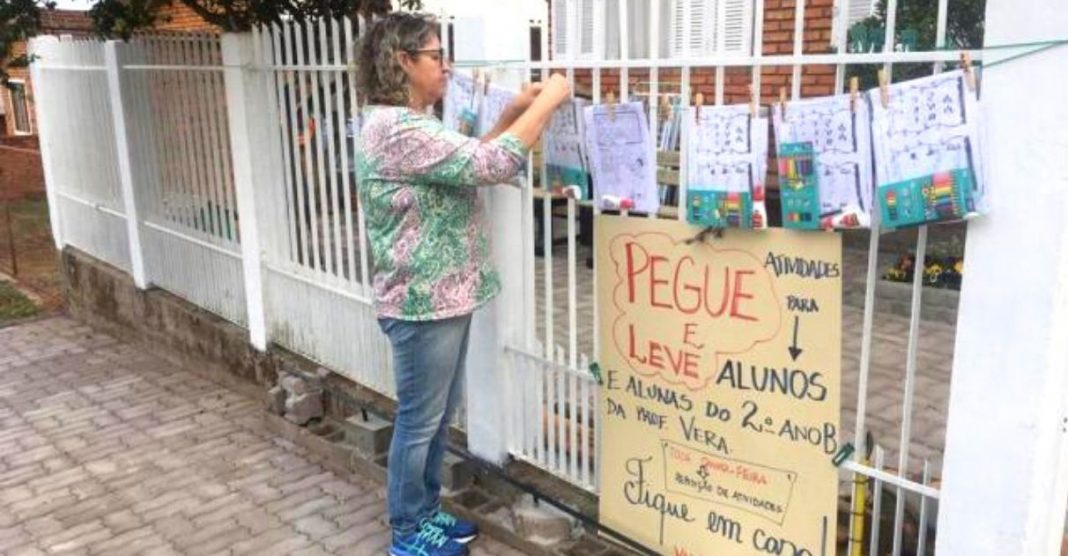 PEGUE
E
LEVE
ATIVIDADES
PARA
ALUNOS
E ALUNAS DO 2º ANO B
DA PROF. VERA.
TODA QUINTA-FEIRA
REPOSIÇÃO DE ATIVIDADES
Fique em casa!